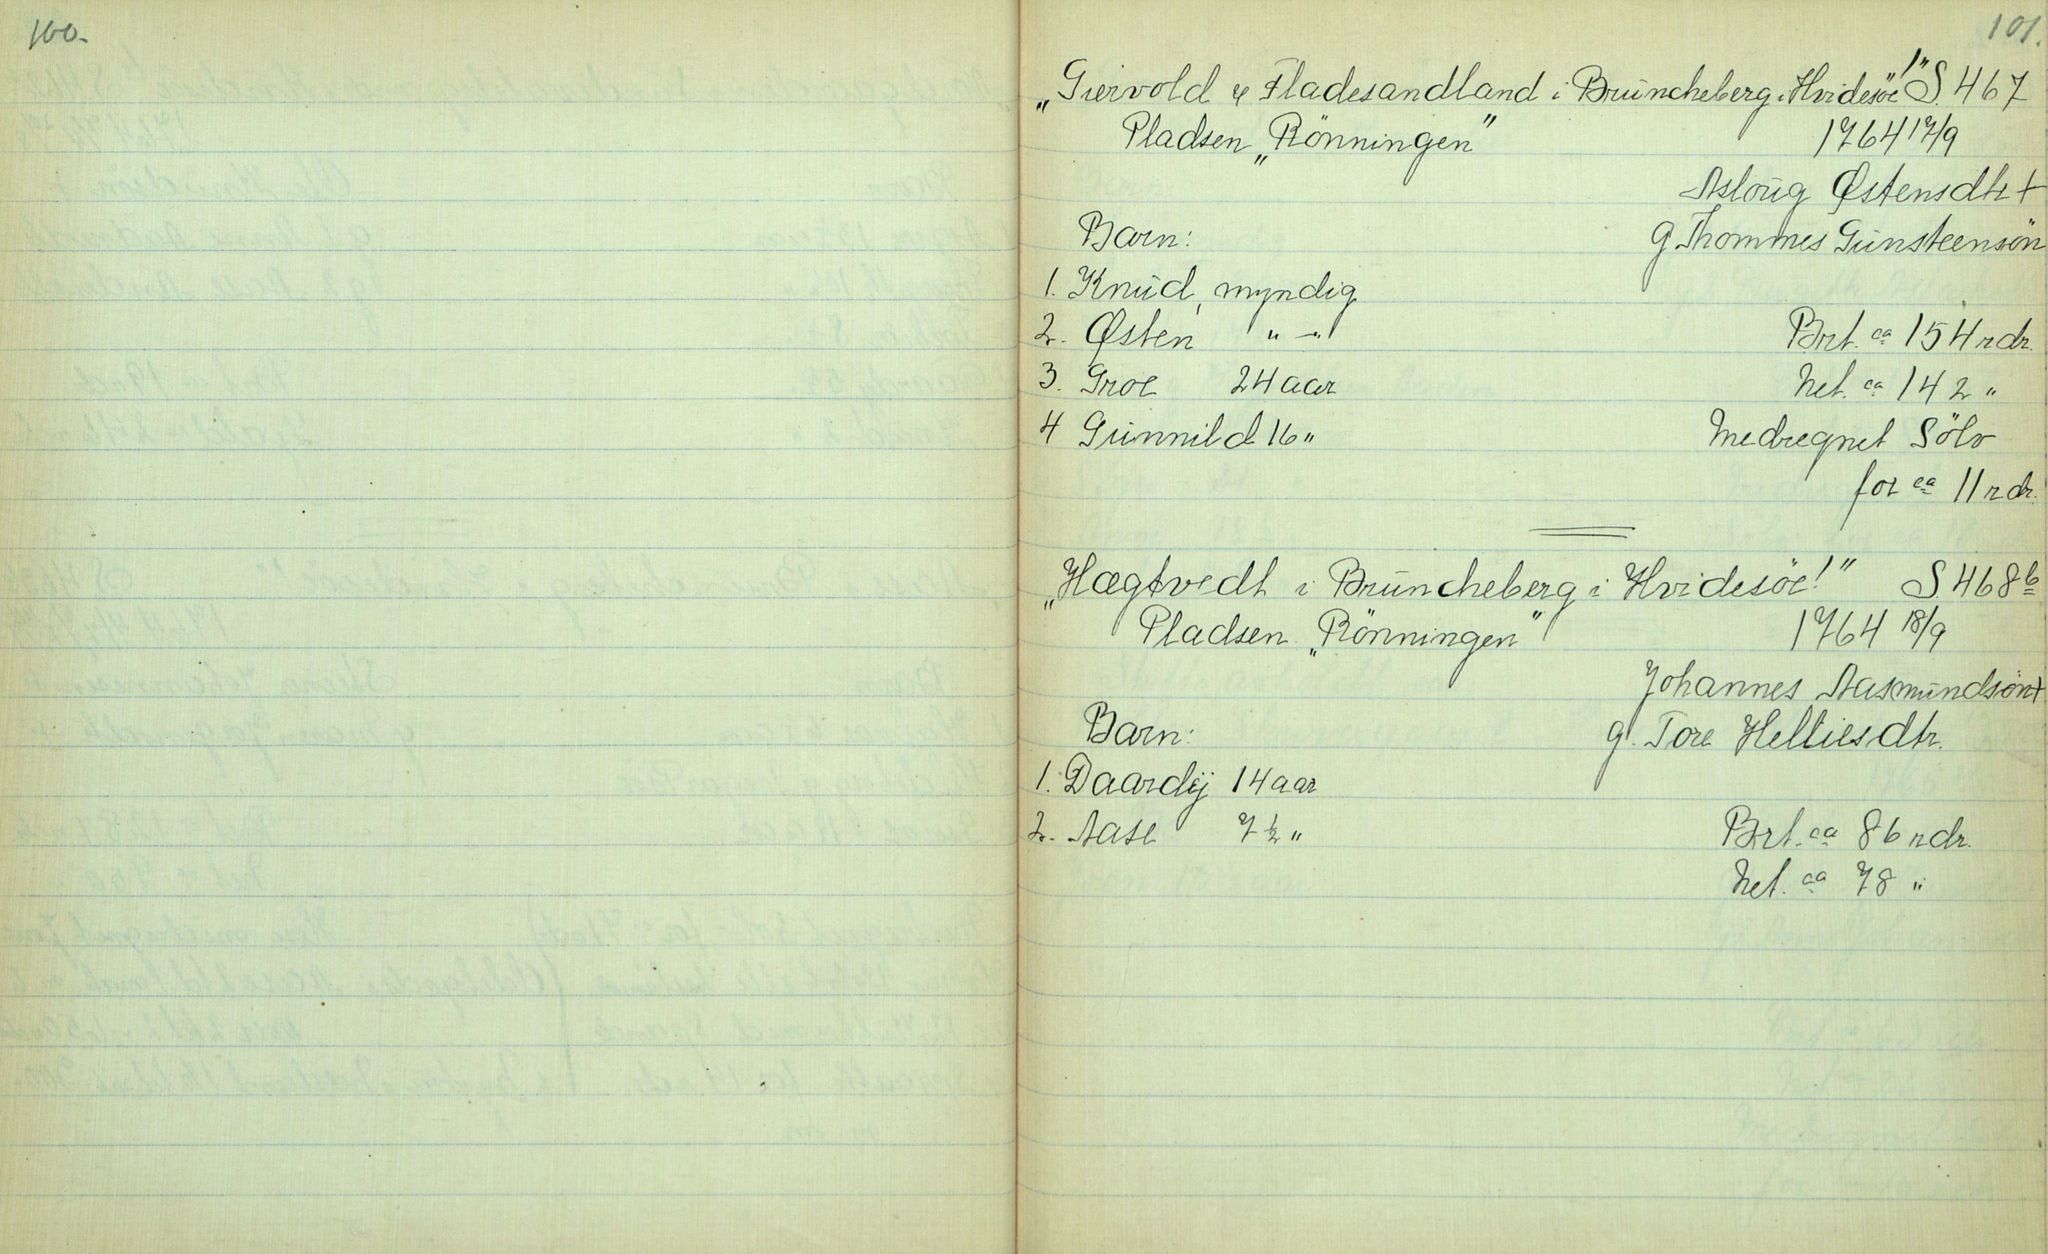 100.
101.
„Giervold & Fladesandland i Brüncheberg i Hvidesöe!" S. 467
Pladsen „Rönningen" 1764 17/9
Asloüg Østensdtr +
Barn: g. Thommes Günsteensön
1. Knüd, myndig
2. Østen " - " Brt. ca 154 rdr.
3. Groe 24 aar Net. ca 142 "
4 Günnild 16 " Medregnet Sölv
for ca 11 rdr.
„Hægtvedt i Brüncheberg i Hvidesöe!" S. 468 b
Pladsen „Rönningen" 1764 18/9
Johannes Aasmündsön +
Barn: g. Tore Helliesdtr.
1. Daardij 14 aar
2. Aase 7 ½ " Brt. ca 86 rdr.
Net. ca 78 "